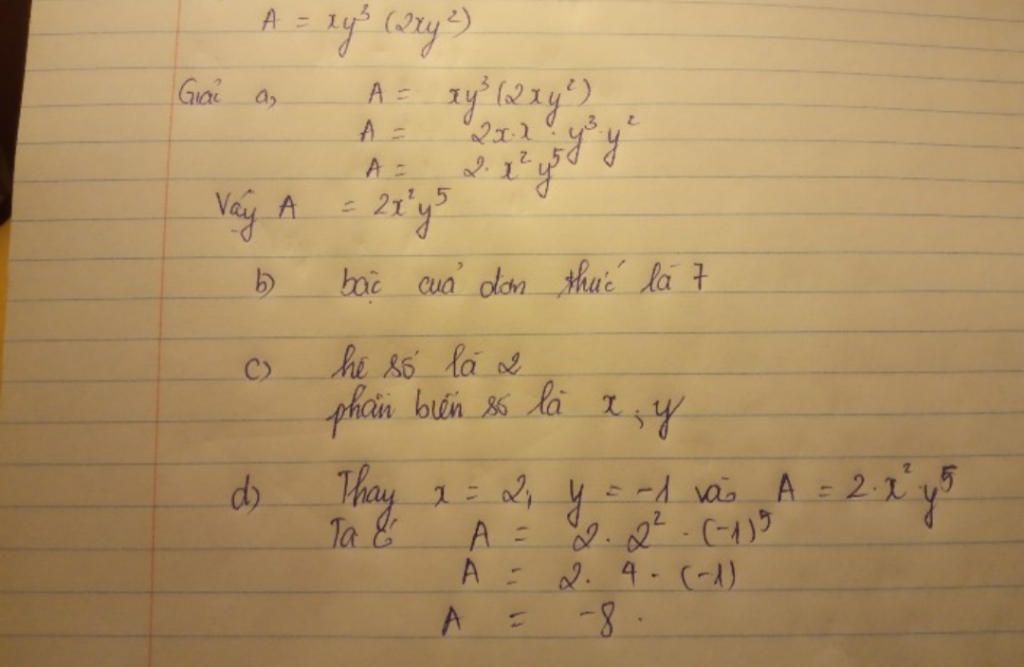 A = xy³ (2xy²)
Giải a, A = xy³(2xy²)
A = 2x.x . y³.y²
A = 2. x² y⁵
Vậy A = 2x²y⁵
b) bậc của đơn thức là 7
c) hệ số là 2
phần biến số là x ; y
d) Thay x = 2, y = -1 vào A = 2.x².y⁵
Ta có A = 2. 2² . (-1)⁵
A = 2. 4. (-1)
A = -8.